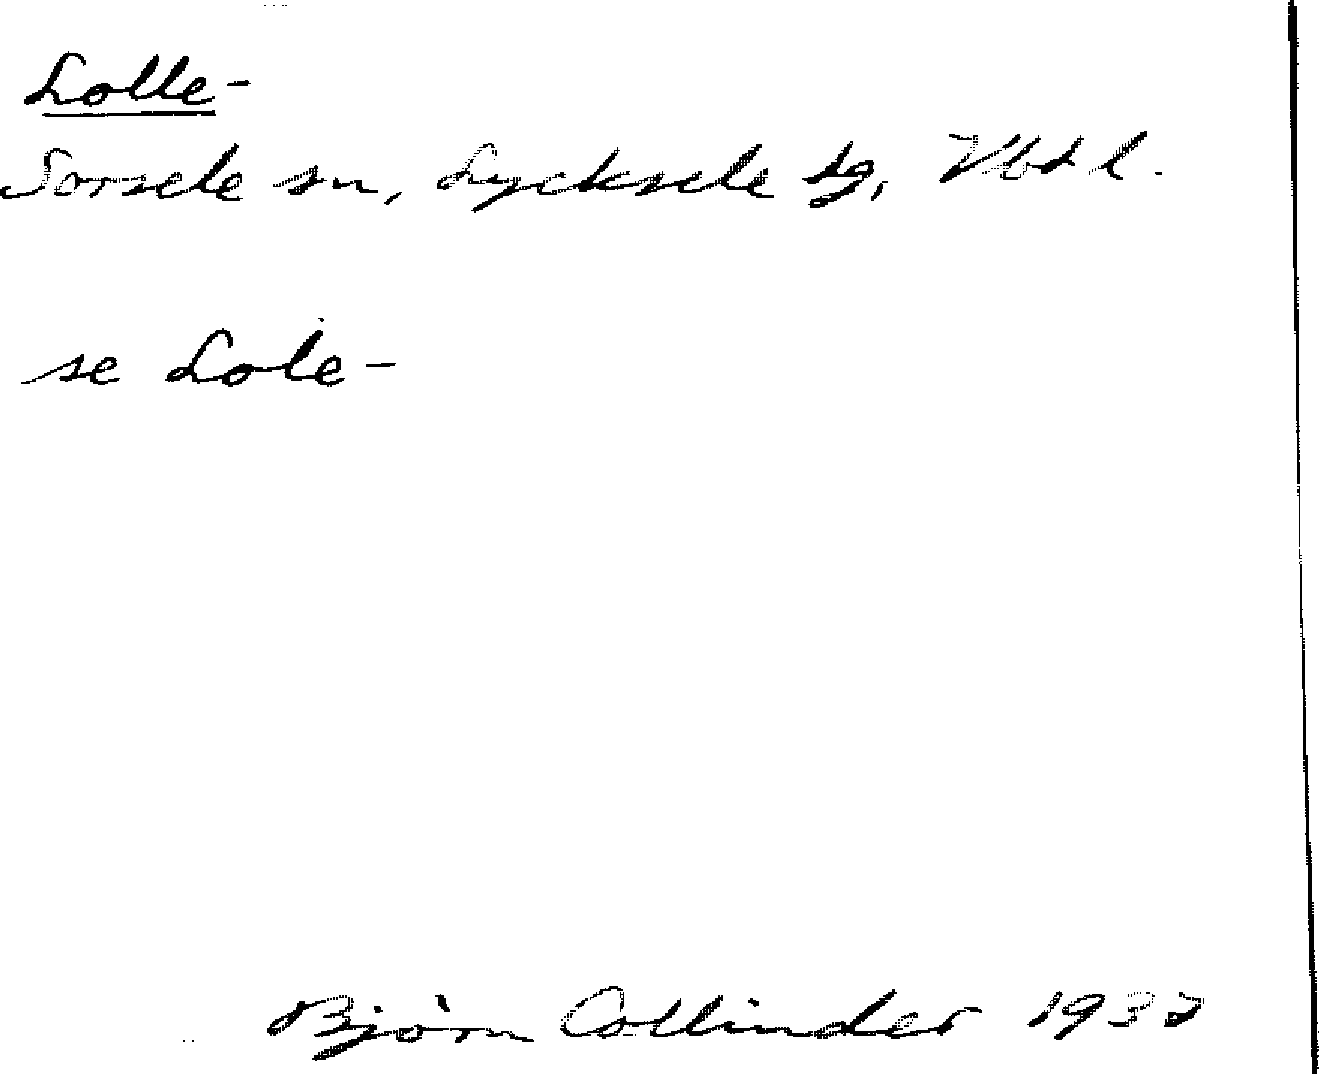 Lolle-
Sorsele sn, Lycksele lg, Vbtl.
se Lole-
Björn Collinder 1932